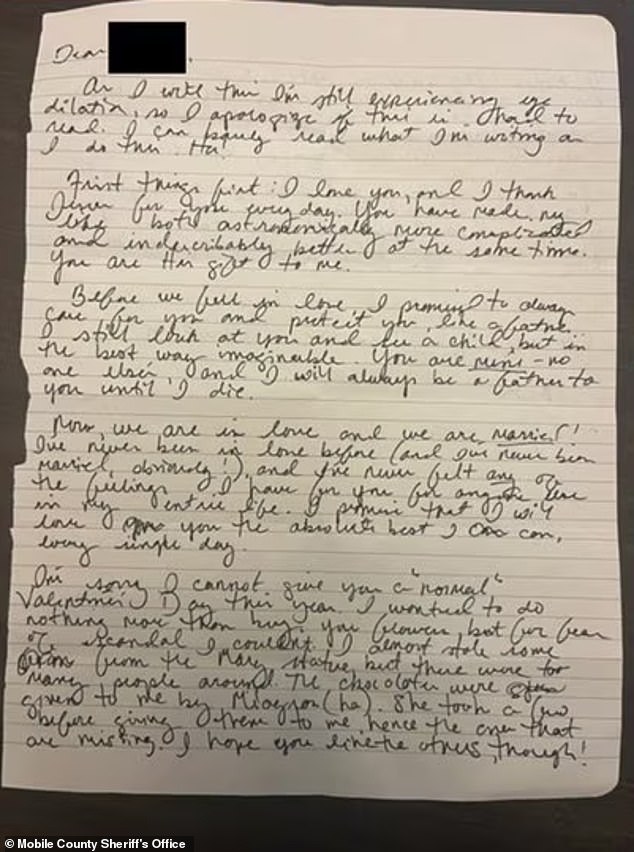 Dear
As I write this I'm still experiencing eye
dilation, so I apologize if this is hard to
read. I can barely read what I'm writing as
I do this. Ha!
First things first: I love you, and I thank
Jesus for you everyday. You have made my
life both astronomically more complicated
and indescribably better at the same time.
You are His gift to me.
Before we fell in love, I promised to always
care for you and protect you, like a father.
I still look at you and see a child, but in
the best way imaginable. You are mine - no
one else's, and I will always be a father to
you until I die.
Now, we are in love and we are married!
I've never been in love before (and I've never been
married, obviously!), and I've never felt any of
the feelings I have for you for anyone else
in my entire life. I promise that I will
love you the absolute best I can,
every single day.
I'm sorry I cannot give you a "normal"
Valentine's Day this year. I wanted to do
nothing more than buy you flowers, but for fear
of scandal I couldn't. I almost stole some
from the Mary statue, but there were too
many people around. The chocolates were
given to me by (ha). She took a few
before giving them to me hence the ones that
are missing. I hope you like the others, though!
© Mobile County Sheriff's Office